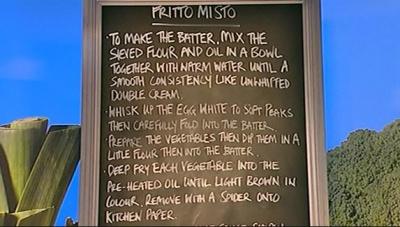 FRITTO MISTO
· TO MAKE THE BATTER, MIX THE
SIEVED FLOUR AND OIL IN A BOWL
TOGETHER WITH WARM WATER UNTIL A
SMOOTH CONSISTENCY LIKE UNWHIPPED
DOUBLE CREAM.
· WHISK UP THE EGG WHITE TO SOFT PEAKS
THEN CAREFULLY FOLD INTO THE BATTER.
· PREPARE THE VEGETABLES THEN DIP THEM IN A
LITTLE FLOUR THEN INTO THE BATTER.
· DEEP FRY EACH VEGETABLE INTO THE
PRE-HEATED OIL UNTIL LIGHT BROWN IN
COLOUR. REMOVE WITH A SPIDER ONTO
KITCHEN PAPER.